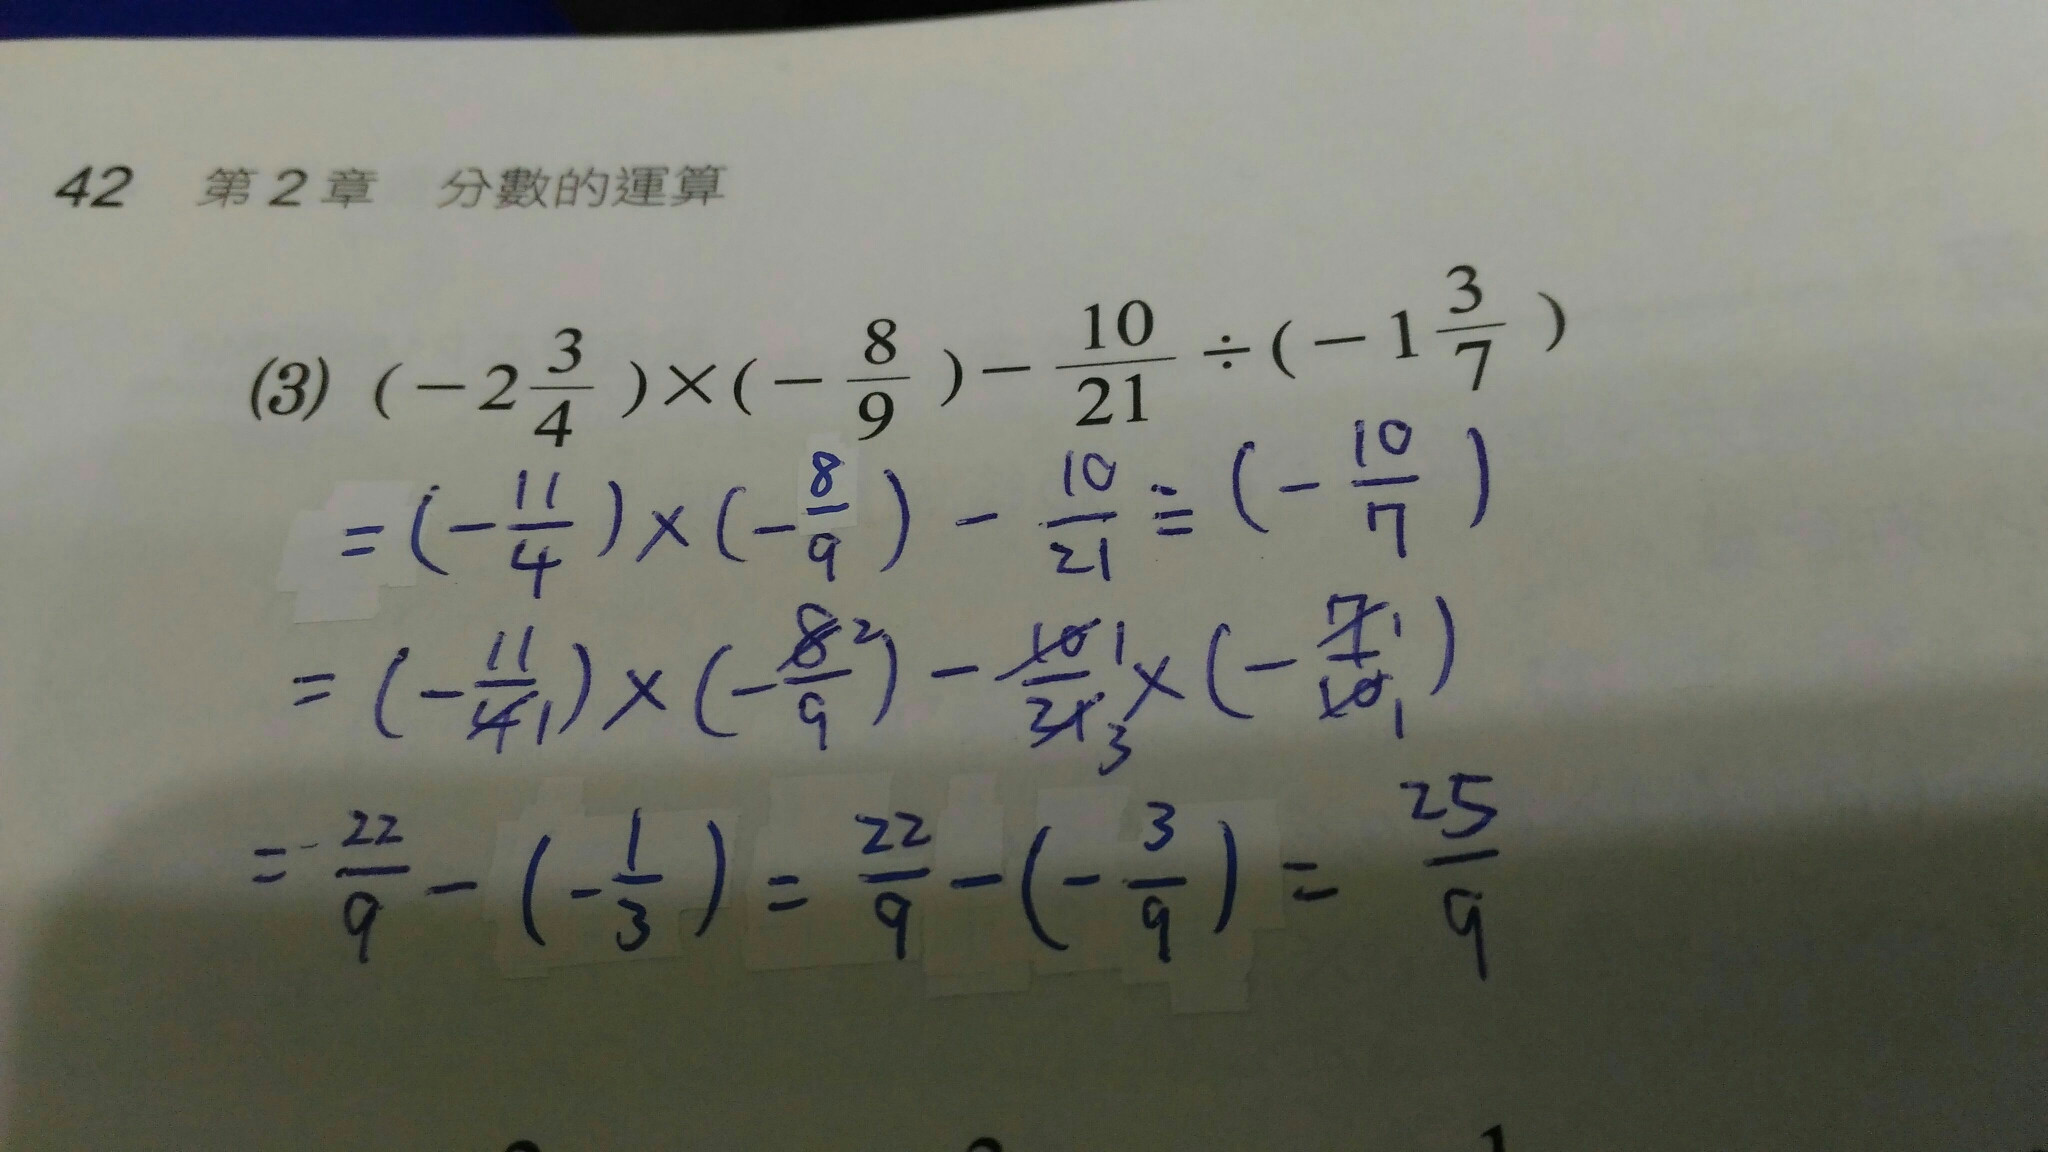 42 第2章 分數的運算
(3) (-2 3/4)×(-8/9)-10/21÷(-1 3/7)
=(-11/4)×(-8/9)-10/21÷(-10/7)
=(-11/4 1)×(-8 2/9)-10 1/21 3×(-7 1/10 1)
=22/9-(-1/3)=22/9-(-3/9)=25/9